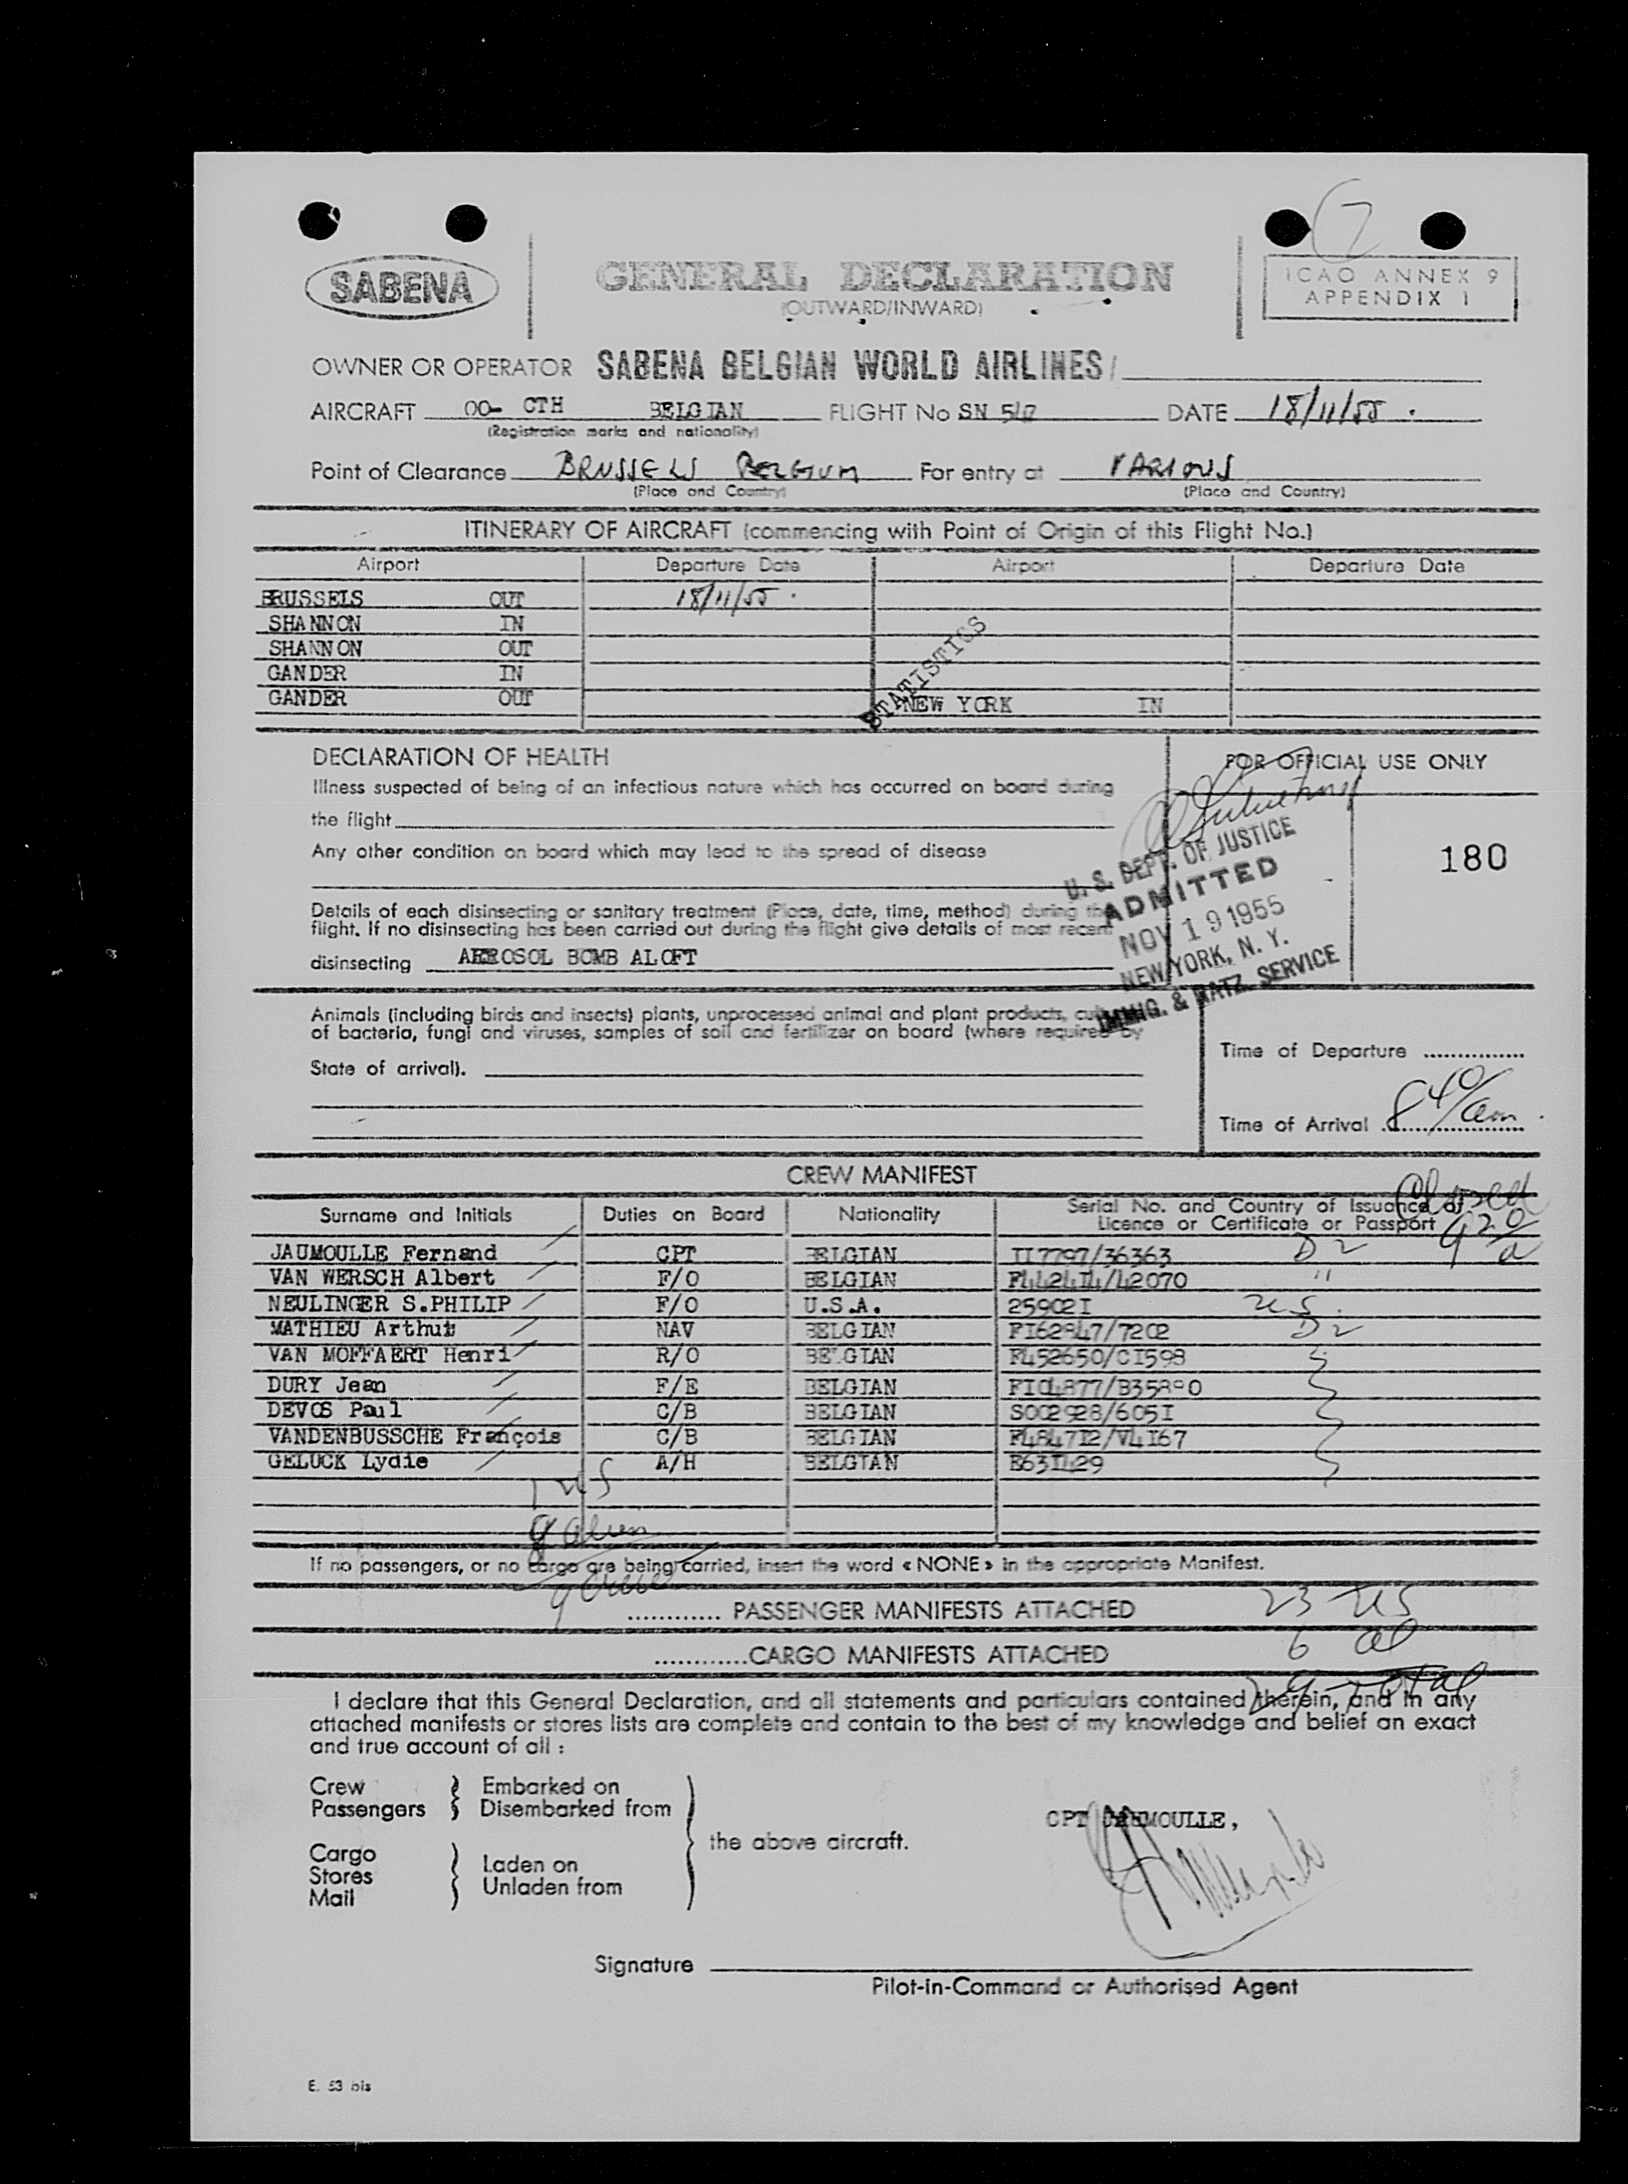 7
SABENA
GENERAL DECLARATION
(OUTWARD/INWARD)
ICAO ANNEX 9
APPENDIX 1
OWNER OR OPERATOR SABENA BELGIAN WORLD AIRLINES/
AIRCRAFT OO- CTH BELGIAN FLIGHT No SN DATE 18/11/55.
(Registration marks and nationality)
Point of Clearance BRUSSELS BELGIUM For entry at VARIOUS
(Place and Country) (Place and Country)
ITINERARY OF AIRCRAFT (commencing with Point of Origin of this Flight No.)
Airport Departure Date Airport Departure Date
BRUSSELS OUT 18/11/55.
SHANNON IN
SHANNON OUT
GANDER IN
GANDER OUT NEW YORK IN
STATISTICS
DECLARATION OF HEALTH
FOR OFFICIAL USE ONLY
Illness suspected of being of an infectious nature which has occurred on board during
the flight
Any other condition on board which may lead to the spread of disease
180
Details of each disinsecting or sanitary treatment (Place, date, time, method) during the
flight. If no disinsecting has been carried out during the flight give details of most recent
disinsecting AEROSOL BOMB ALOFT
U. S. DEPT. OF JUSTICE
ADMITTED
NOV 19 1955
NEW YORK, N. Y.
IMMIG. & NATZ. SERVICE
Animals (including birds and insects) plants, unprocessed animal and plant products,
of bacteria, fungi and viruses, samples of soil and fertilizer on board (where required by
State of arrival).
Time of Departure
Time of Arrival 8 40/am
CREW MANIFEST
Closed
920/a
Surname and Initials Duties on Board Nationality Serial No. and Country of Issuance of
Licence or Certificate or Passport
JAUMOULLE Fernand CPT BELGIAN II7797/36363 D2
VAN WERSCH Albert F/O BELGIAN F4424I4/42070 "
NEULINGER S.PHILIP F/O U.S.A. 25902I US.
MATHIEU Arthur NAV BELGIAN FI62847/7202 D2
VAN MOFFAERT Henri R/O BELGIAN F452650/CI598
DURY Jean F/E BELGIAN
DEVOS Paul C/B BELGIAN S002928/605I
VANDENBUSSCHE François C/B BELGIAN F4847I2/V4I67
GELUCK Lydie A/H BELGIAN E63I429
1 US
9 Alien
If no passengers, or no cargo are being carried, insert the word « NONE » in the appropriate Manifest.
9 Crew
............ PASSENGER MANIFESTS ATTACHED 23 US
............CARGO MANIFESTS ATTACHED 6 al
29 Total
I declare that this General Declaration, and all statements and particulars contained therein, and in any
attached manifests or stores lists are complete and contain to the best of my knowledge and belief an exact
and true account of all :
Crew Embarked on
Passengers Disembarked from
the above aircraft.
CPT JAUMOULLE,
Cargo
Stores Laden on
Mail Unladen from
Signature
Pilot-in-Command or Authorised Agent
E. 53 bis